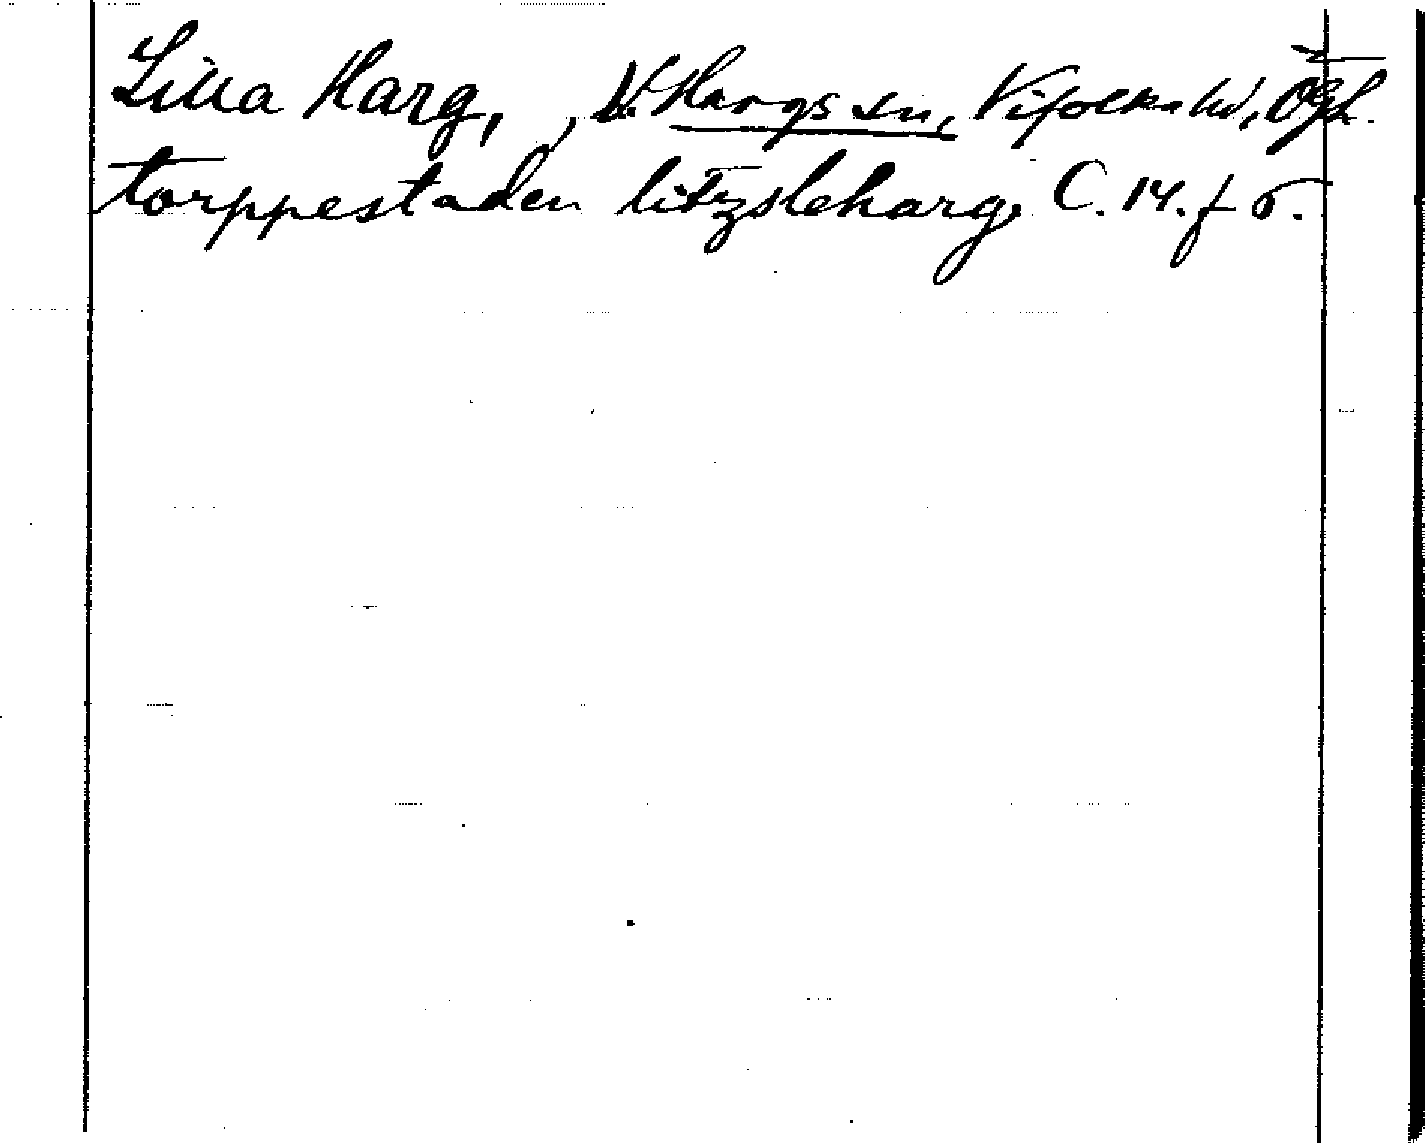 Lilla Harg, , V. Hargs sn, Vifolka hd, Ögl.
torppestaden litzsleharg. C. 14. f 6.